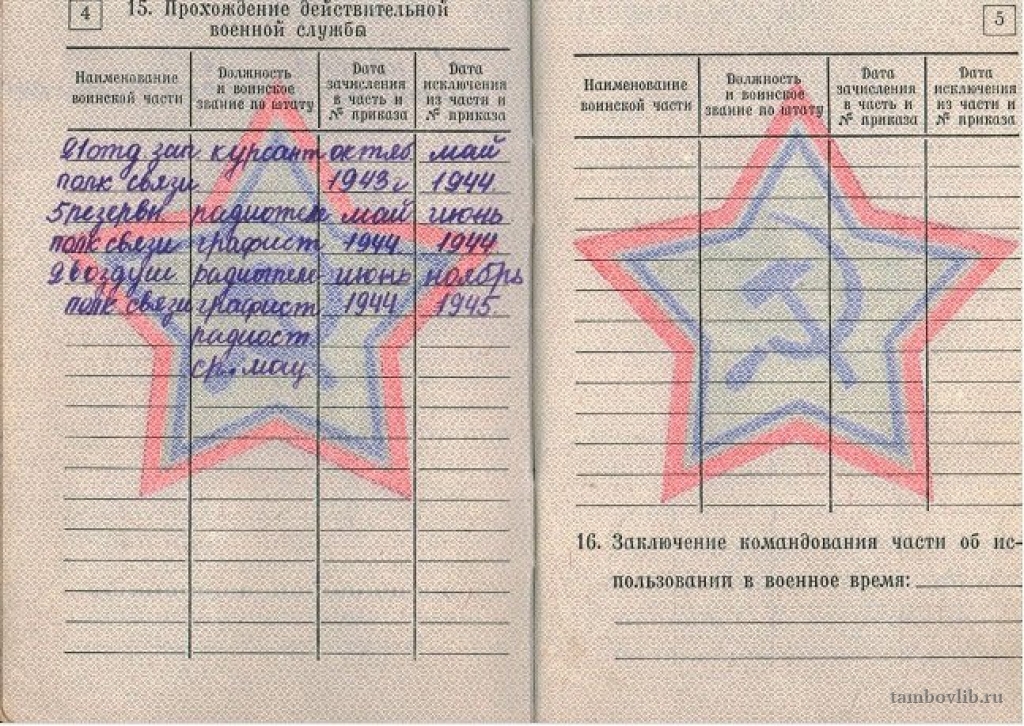 4
15. Прохождение действительной
военной службы
Наименование воинской части
Должность и воинское звание по штату
Дата зачисления в часть и № приказа
Дата исключения из части и № приказа
21 отд зап курсант октяб май
полк связи 1943 г 1944
5 резервн радиотел май июнь
полк связи графист 1944 1944
2 воздуш радиотеле июнь ноябрь
полк связи графист 1944 1945
радиост
5
Наименование воинской части
Должность и воинское звание по штату
Дата зачисления в часть и № приказа
Дата исключения из части и № приказа
16. Заключение командования части об ис-
пользовании в военное время:
tambovlib.ru